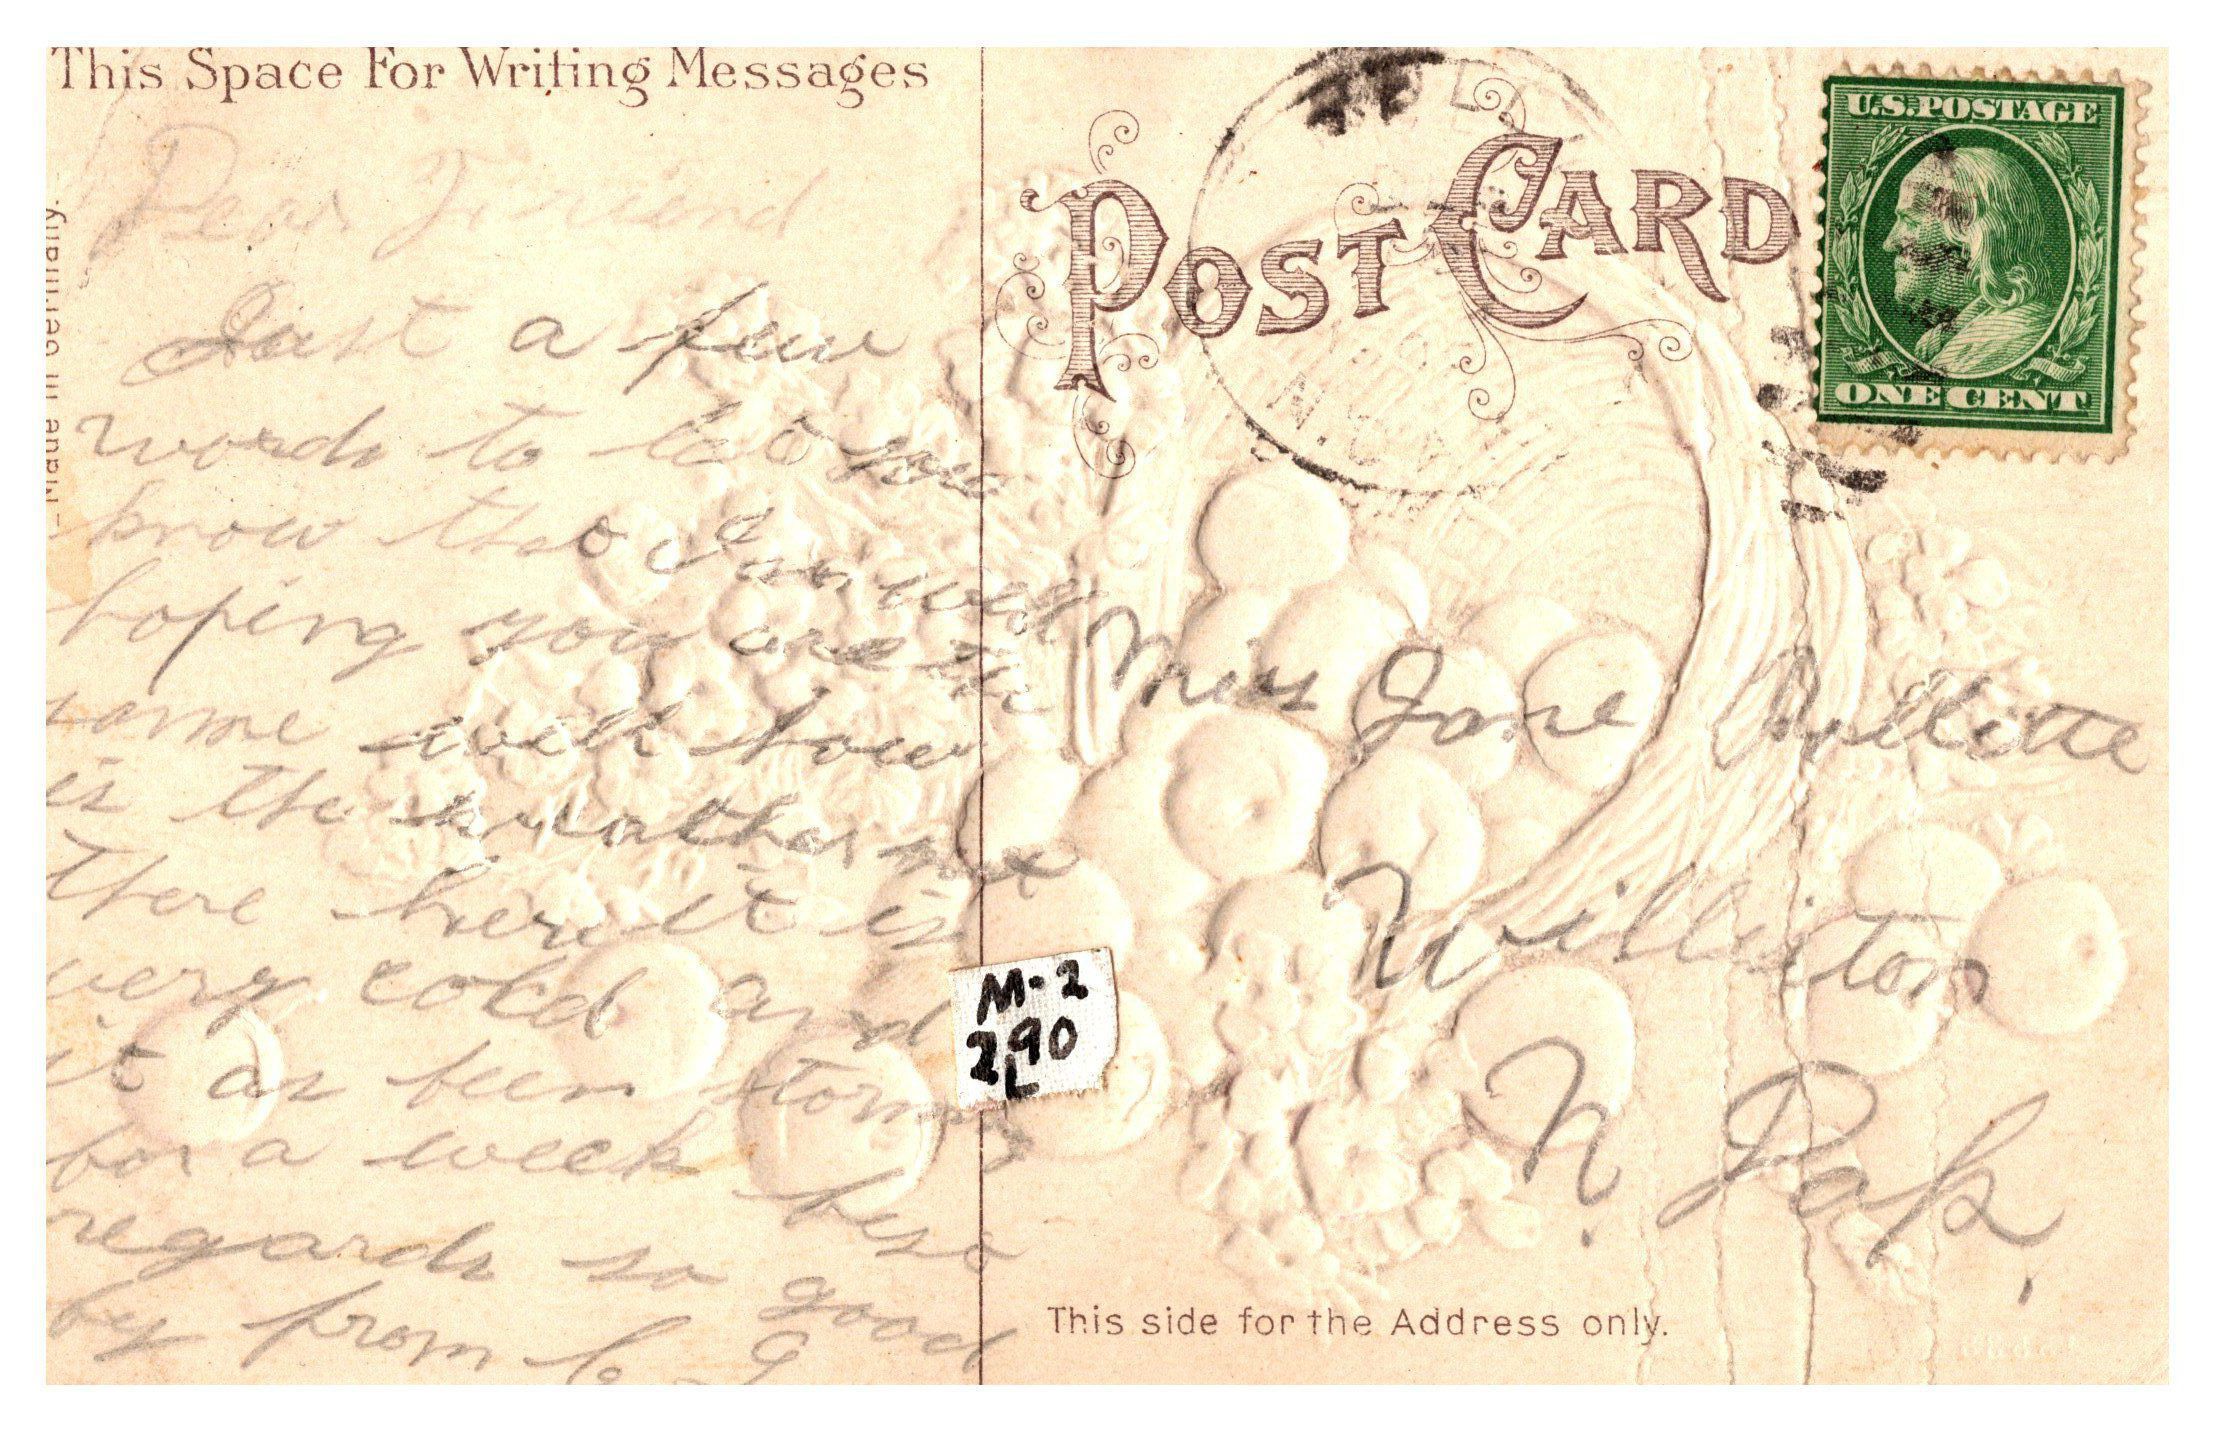 This Space For Writing Messages
Made in Germany.
Dear Friend
Just a few
words to let you
know that I am well
hoping you are the
same well how
is the weather out
there here it is
very cold and
it as been stormy
for a week best
regards so good
by from C G
POST CARD
U.S. POSTAGE
ONE CENT
Miss Jane
Williston
N. Dak.
M-2
290
L
This side for the Address only.